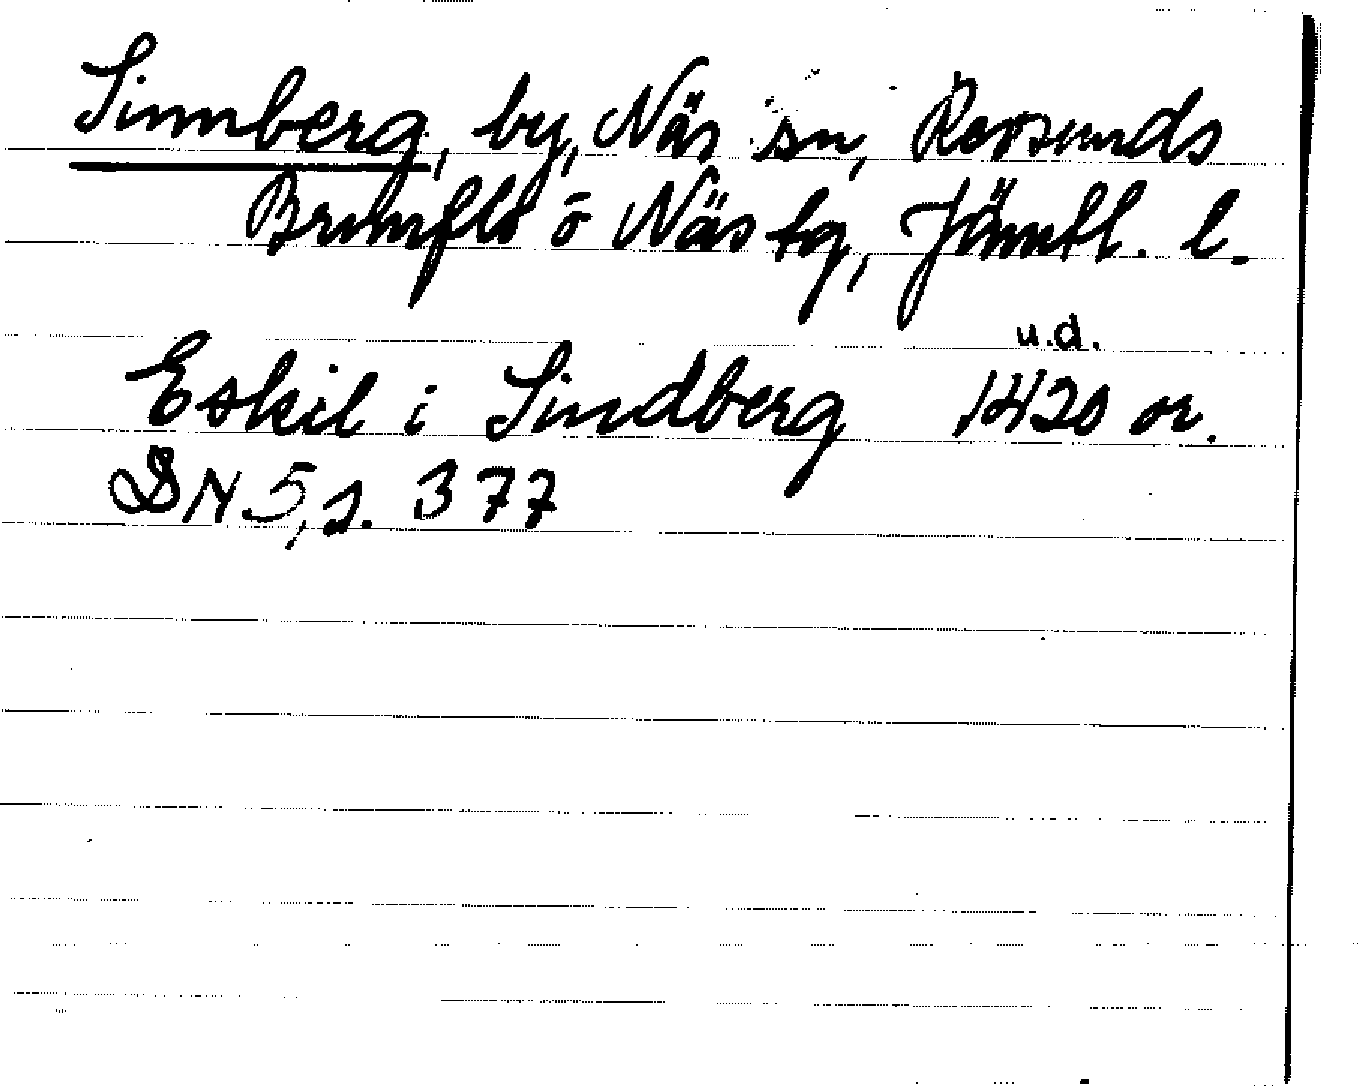 Sinnberg, by, Näs sn, Revsunds
Brunflo o Näs tg, Jämtl. l.
u.d.
Eskil i Sindberg 1420 or.
DN 5, s. 377